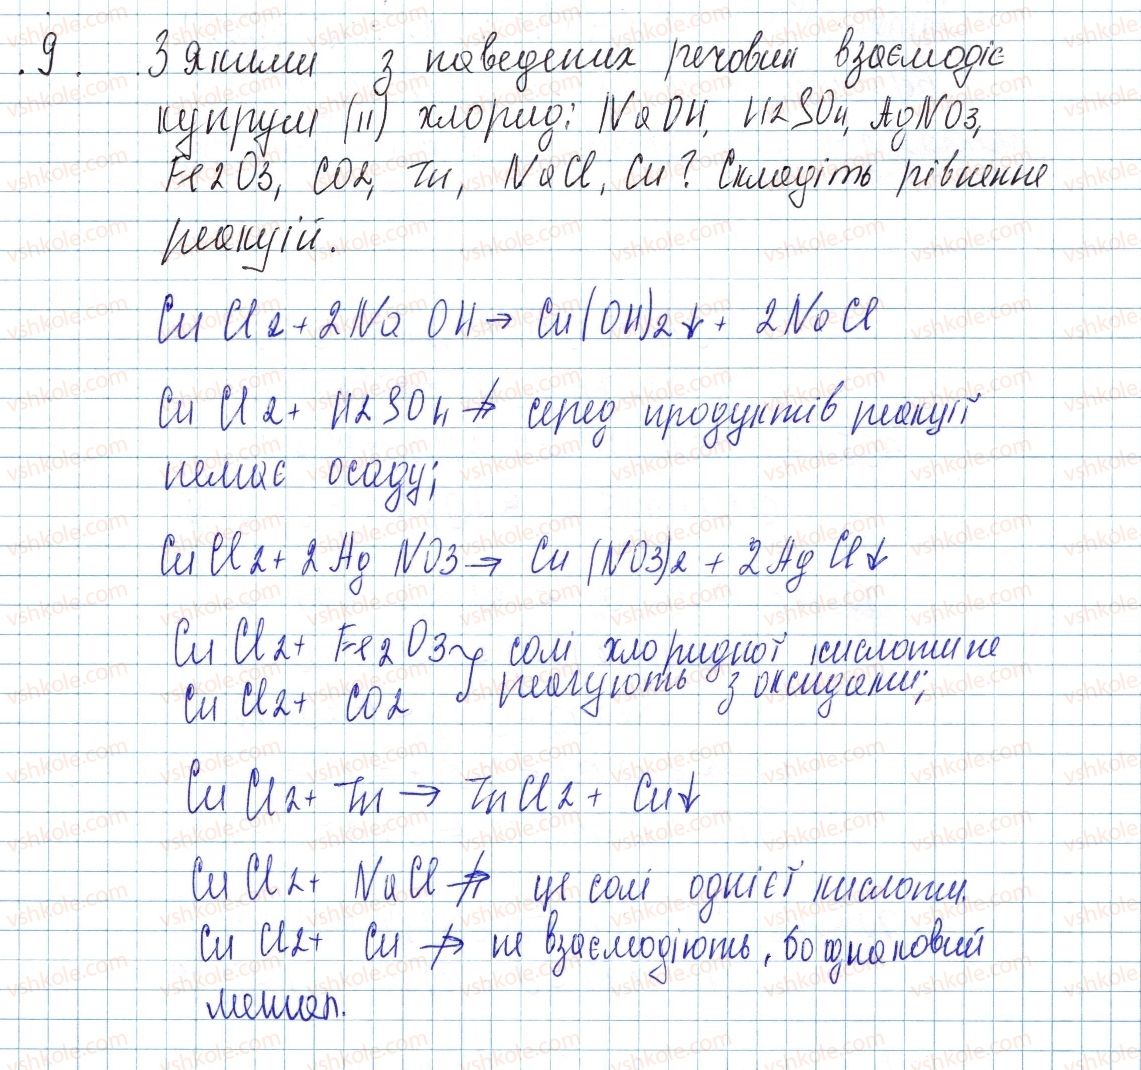 .9. З якими з наведених речовин взаємодіє
купрум (ІІ) хлорид: NaOH, H2SO4, AgNO3,
Fe2O3, CO2, Zn, NaCl, Cu? Складіть рівняння
реакцій.
CuCl2 + 2NaOH → Cu(OH)2↓ + 2NaCl
CuCl2 + H2SO4 ↛ серед продуктів реакції
немає осаду;
CuCl2 + 2AgNO3 → Cu(NO3)2 + 2AgCl↓
CuCl2 + Fe2O3 } солі хлоридної кислоти не
CuCl2 + CO2 реагують з оксидами;
CuCl2 + Zn → ZnCl2 + Cu↓
CuCl2 + NaCl ↛ це солі однієї кислоти.
CuCl2 + Cu ↛ не взаємодіють, бо однаковий
метал.